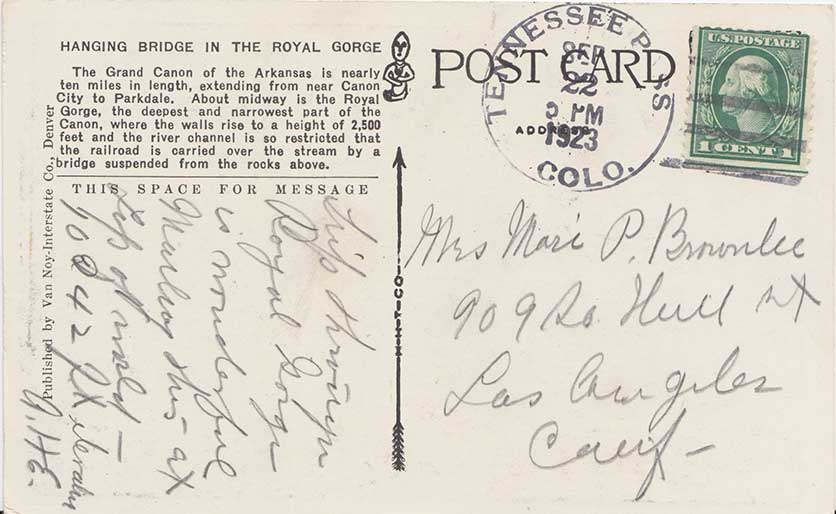 HANGING BRIDGE IN THE ROYAL GORGE
The Grand Canon of the Arkansas is nearly
ten miles in length, extending from near Canon
City to Parkdale. About midway is the Royal
Gorge, the deepest and narrowest part of the
Canon, where the walls rise to a height of 2,500
feet and the river channel is so restricted that
the railroad is carried over the stream by a
bridge suspended from the rocks above.
THIS SPACE FOR MESSAGE
Trip through
Royal Gorge
is wonderful
Mailing this at
top of world
10242 ft elevation
Published by Van Noy-Interstate Co., Denver
H-H-T-CO-
POST CARD
ADDRESS
TENNESSEE PASS
SEP
22
5 PM
1923
COLO.
U.S. POSTAGE
1 CENT 1
Mrs P. Brownlee
909 So
Los Angeles
Calif-